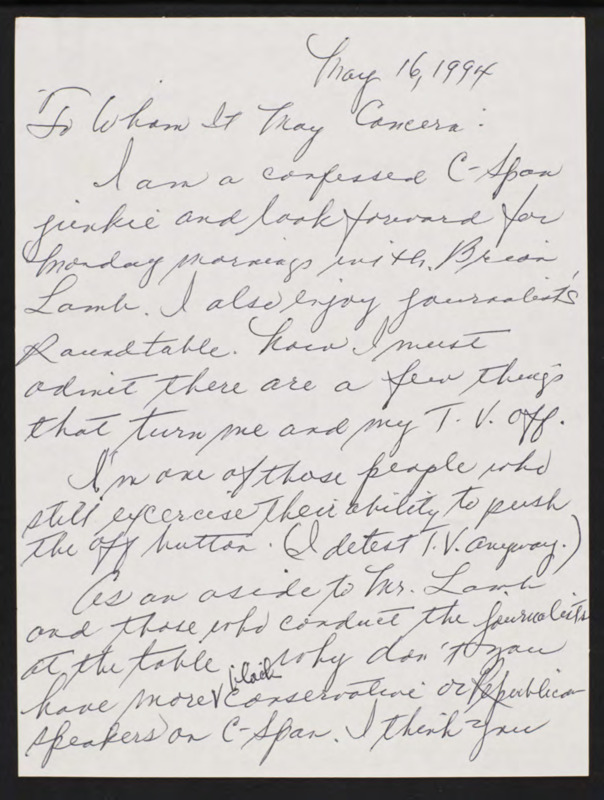 May 16, 1994
To Whom It May Concern:
I am a confessed C-Span
junkie and look forward for
Monday mornings with Brian
Lamb. I also enjoy journalist's
Roundtable. Now I must
admit there are a few things
that turn me and my T.V. off.
I'm one of those people who
still excercise their ability to push
the off button. (I detest T.V. anyway.)
As an aside to Mr. Lamb
and those who conduct the journalists
at the table, why don't you
have more black conservative or Republican
speakers on C-Span. I think you